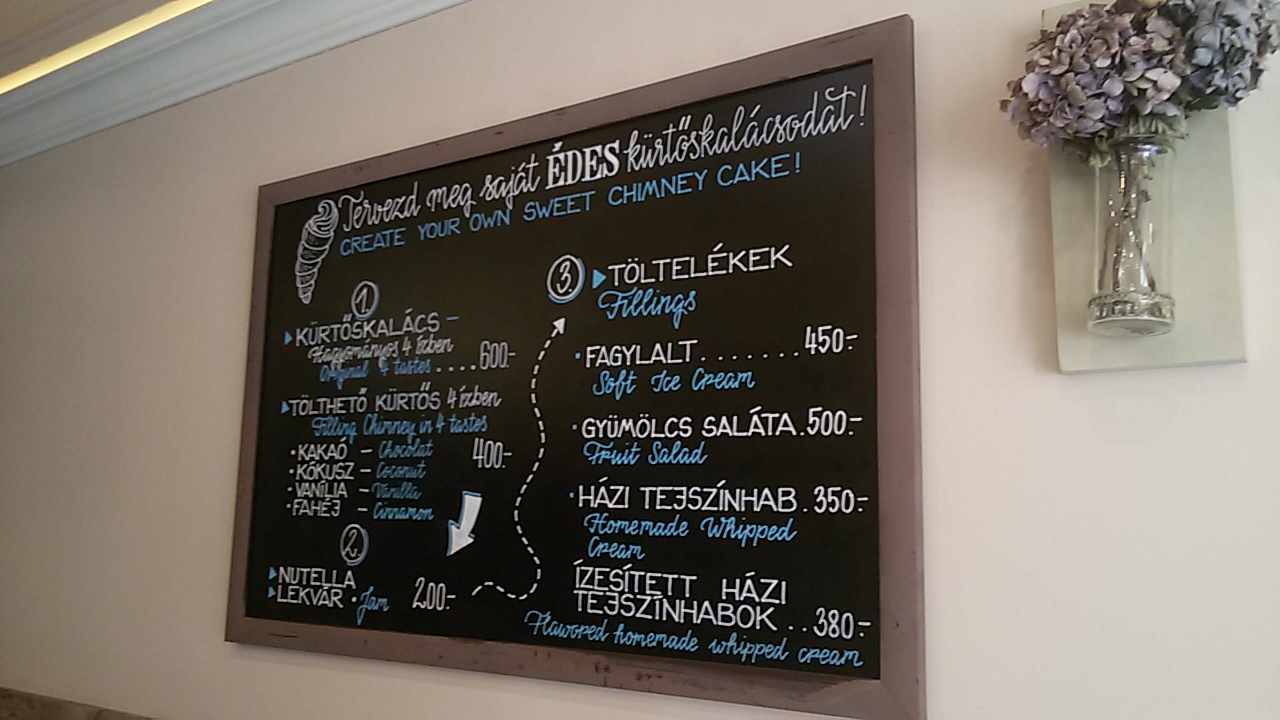 Tervezd meg saját ÉDES kürtőskalácsodat!
CREATE YOUR OWN SWEET CHIMNEY CAKE!
1.
KÜRTŐSKALÁCS –
Hagyományos 4 ízben
Original 4 tastes ....600.-
TÖLTHETŐ KÜRTŐS 4 ízben
Filling Chimney in 4 tastes
• KAKAÓ – Chocolat 400.-
• KÓKUSZ – Coconut
• VANÍLIA – Vanilla
• FAHÉJ – Cinnamon
2.
NUTELLA
LEKVÁR • Jam 200.-
3. TÖLTELÉKEK
Fillings
• FAGYLALT.......450.-
Soft Ice Cream
• GYÜMÖLCS SALÁTA.500.-
Fruit Salad
• HÁZI TEJSZÍNHAB.350.-
Homemade Whipped
Cream
ÍZESÍTETT HÁZI
TEJSZÍNHABOK..380.-
Flawored homemade whipped cream